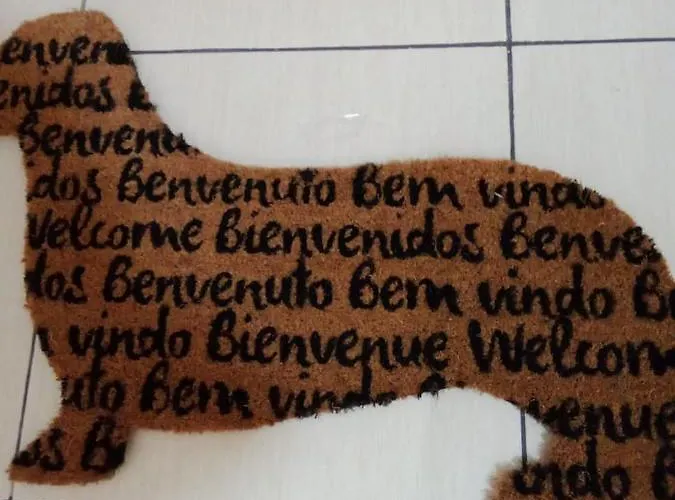 envenu
enidos B
Benvenu
dos Benvenuto Bem vindo
Welcome Bienvenidos Benve
dos Benvenuto Bem vindo Be
m vindo Bienvenue Welcom
uto Bem vindo
venue
os B
indo B